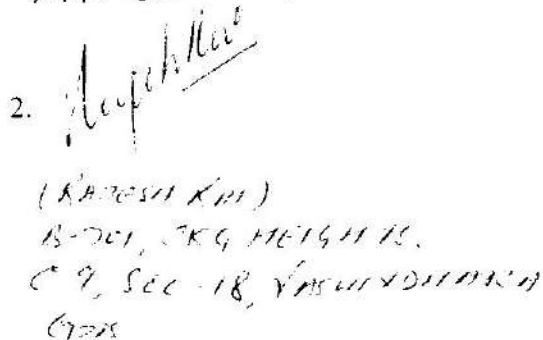 2.
(RAJESH KM)
B-701, SKG HEIGHTS.
C 9, SEC-18, VASUNDHARA
GZB